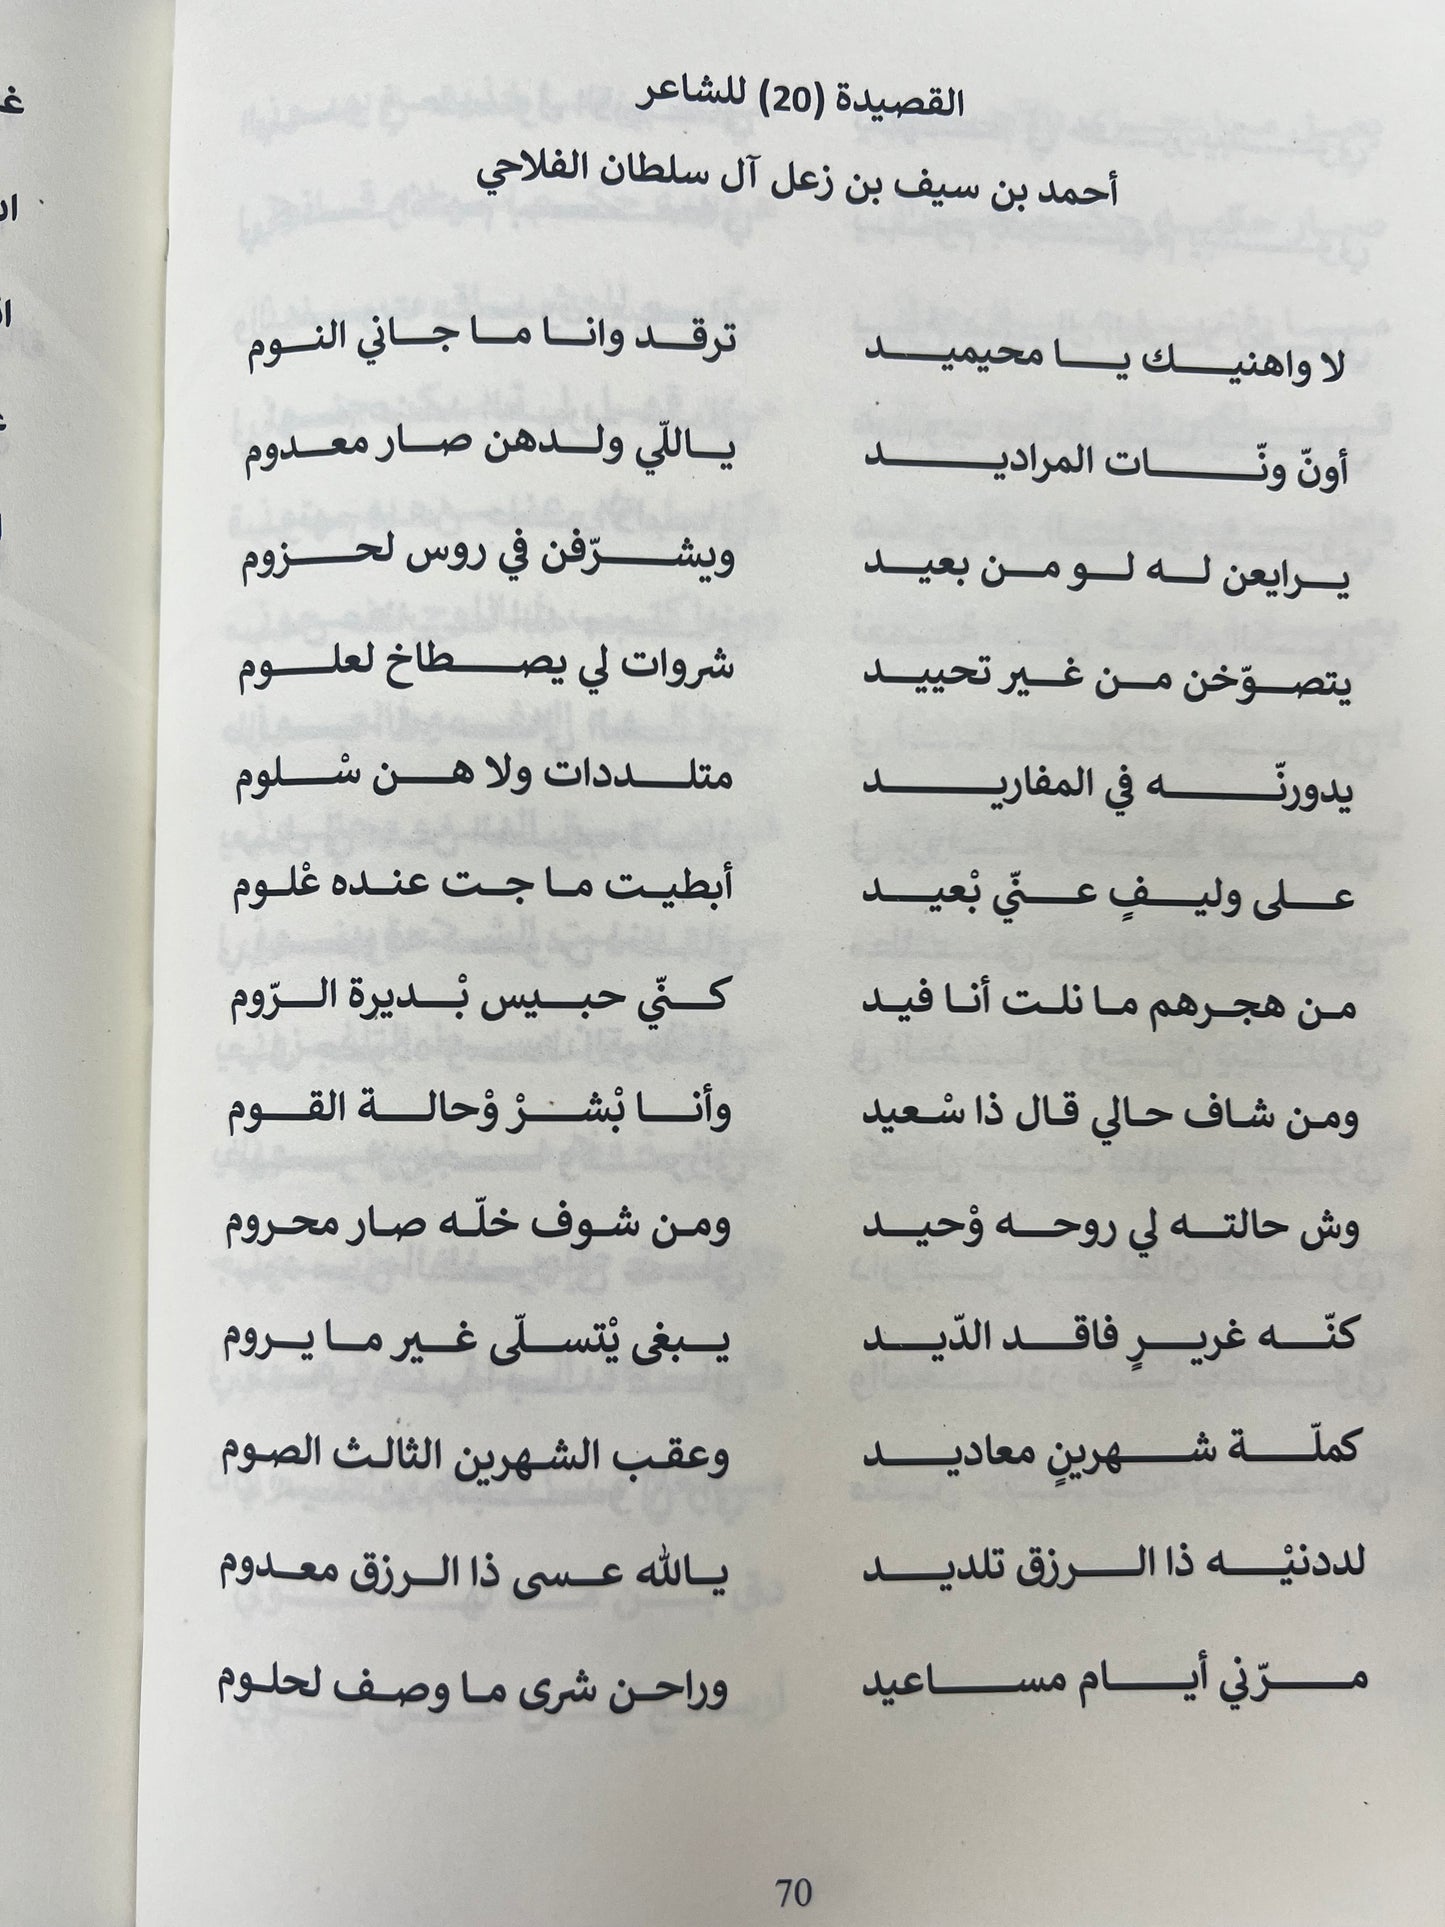 القصيدة (20) للشاعر
أحمد بن سيف بن زعل آل سلطان الفلاحي
لا واهنيك يا محيميد ترقد وانا ما جاني النوم
أونّ ونّات المراديد ياللّي ولدهن صار معدوم
يرايعن له لو من بعيد ويشرّفن في روس لحزوم
يتصوّخن من غير تحييد شروات لي يصطاخ لعلوم
يدورنّه في المفاريد متلددات ولا هن سْلوم
على وليفٍ عنّي بْعيد أبطيت ما جت عنده عْلوم
من هجرهم ما نلت أنا فيد كنّي حبيس بْديرة الرّوم
ومن شاف حالي قال ذا سْعيد وأنا بْشرْ وْحالة القوم
وش حالته لي روحه وْحيد ومن شوف خلّه صار محروم
كنّه غريرٍ فاقد الدّيد يبغى يْتسلّى غير ما يروم
كملّة شهرينٍ معاديد وعقب الشهرين الثالث الصوم
لددنيْه ذا الرزق تلديد يالله عسى ذا الرزق معدوم
مرّني أيام مساعيد وراحن شرى ما وصف لحلوم
70